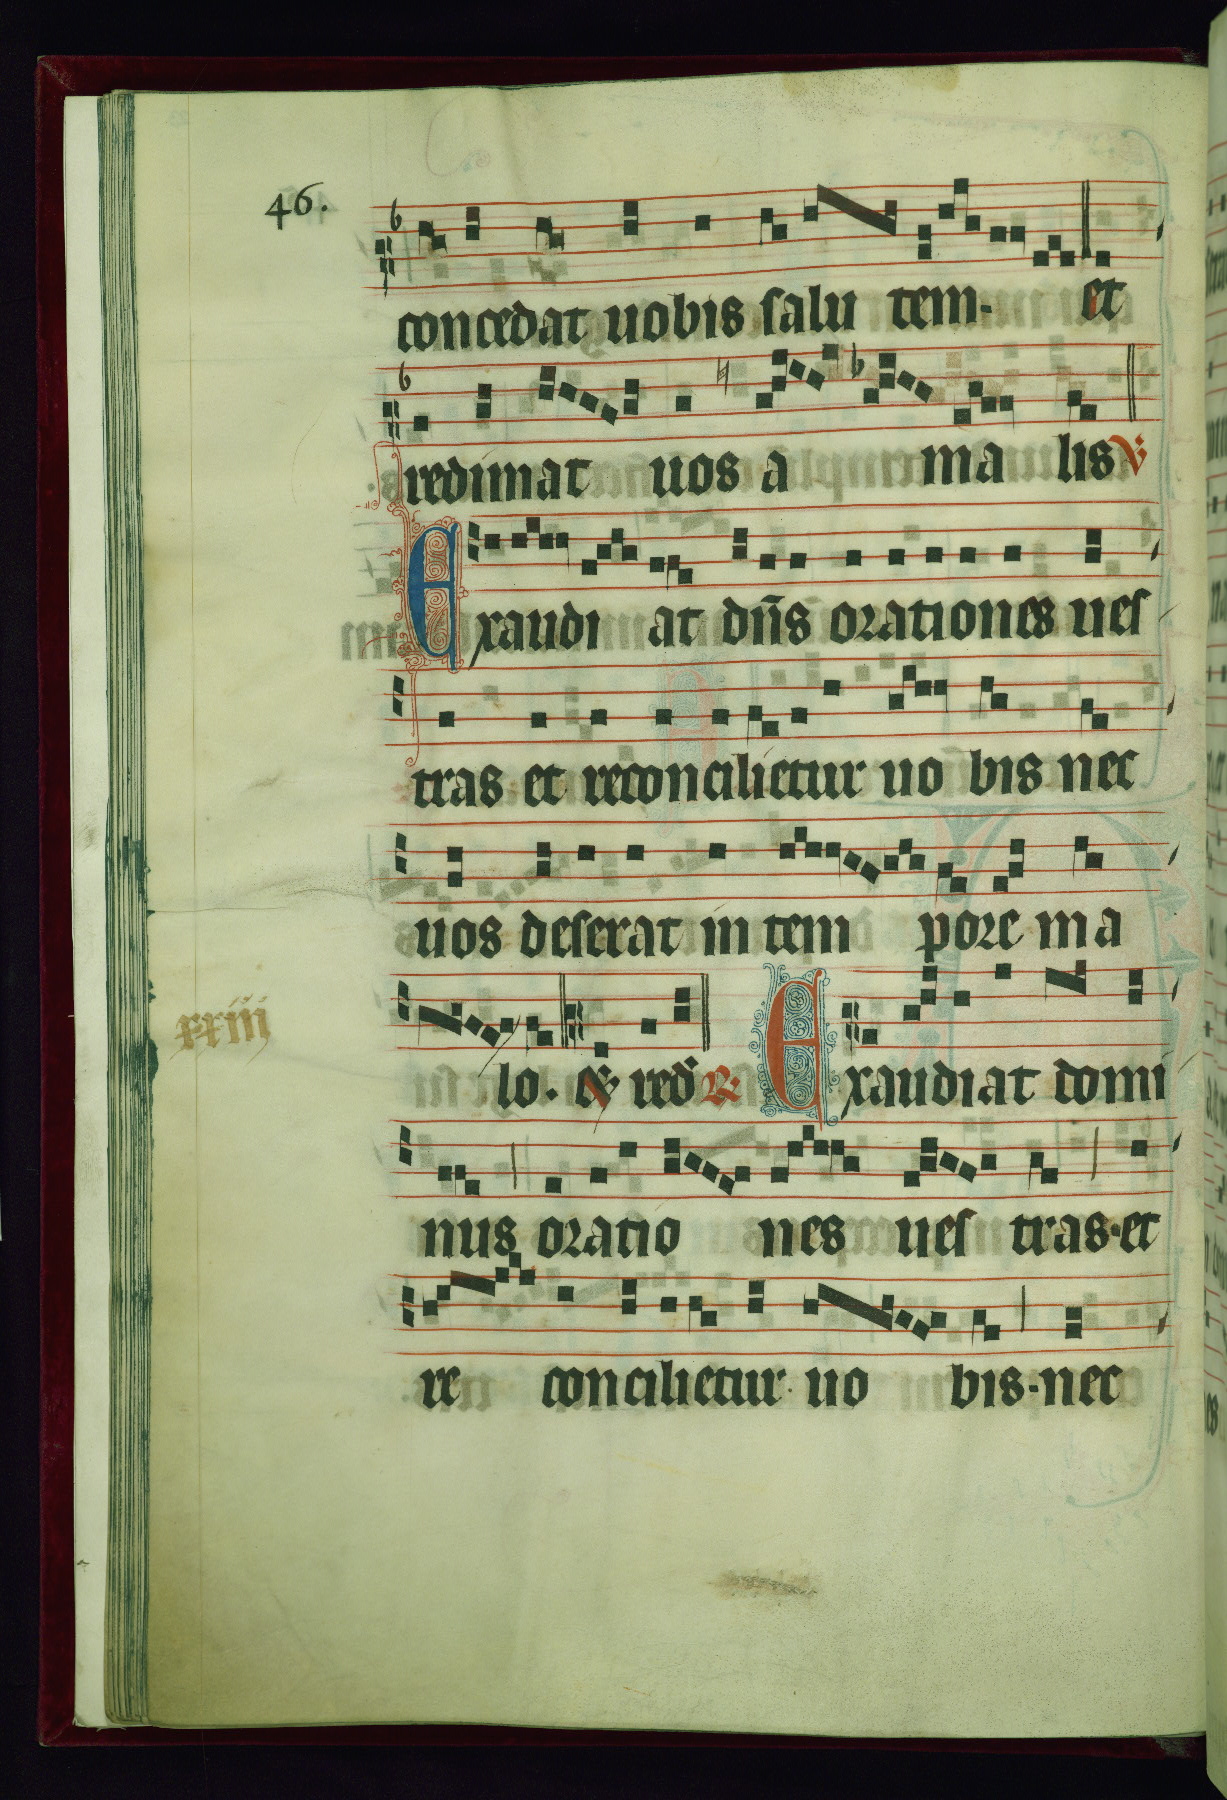 46.
concedat uobis salu tem. et
redimat uos a ma lis V
Exaudi at dñs orationes ues
tras et reconcilietur uo bis nec
uos deserat in tem pore ma
xxiii
lo. & red R Exaudiat domi
nus oratio nes ues tras. et
re concilietur uo bis. nec